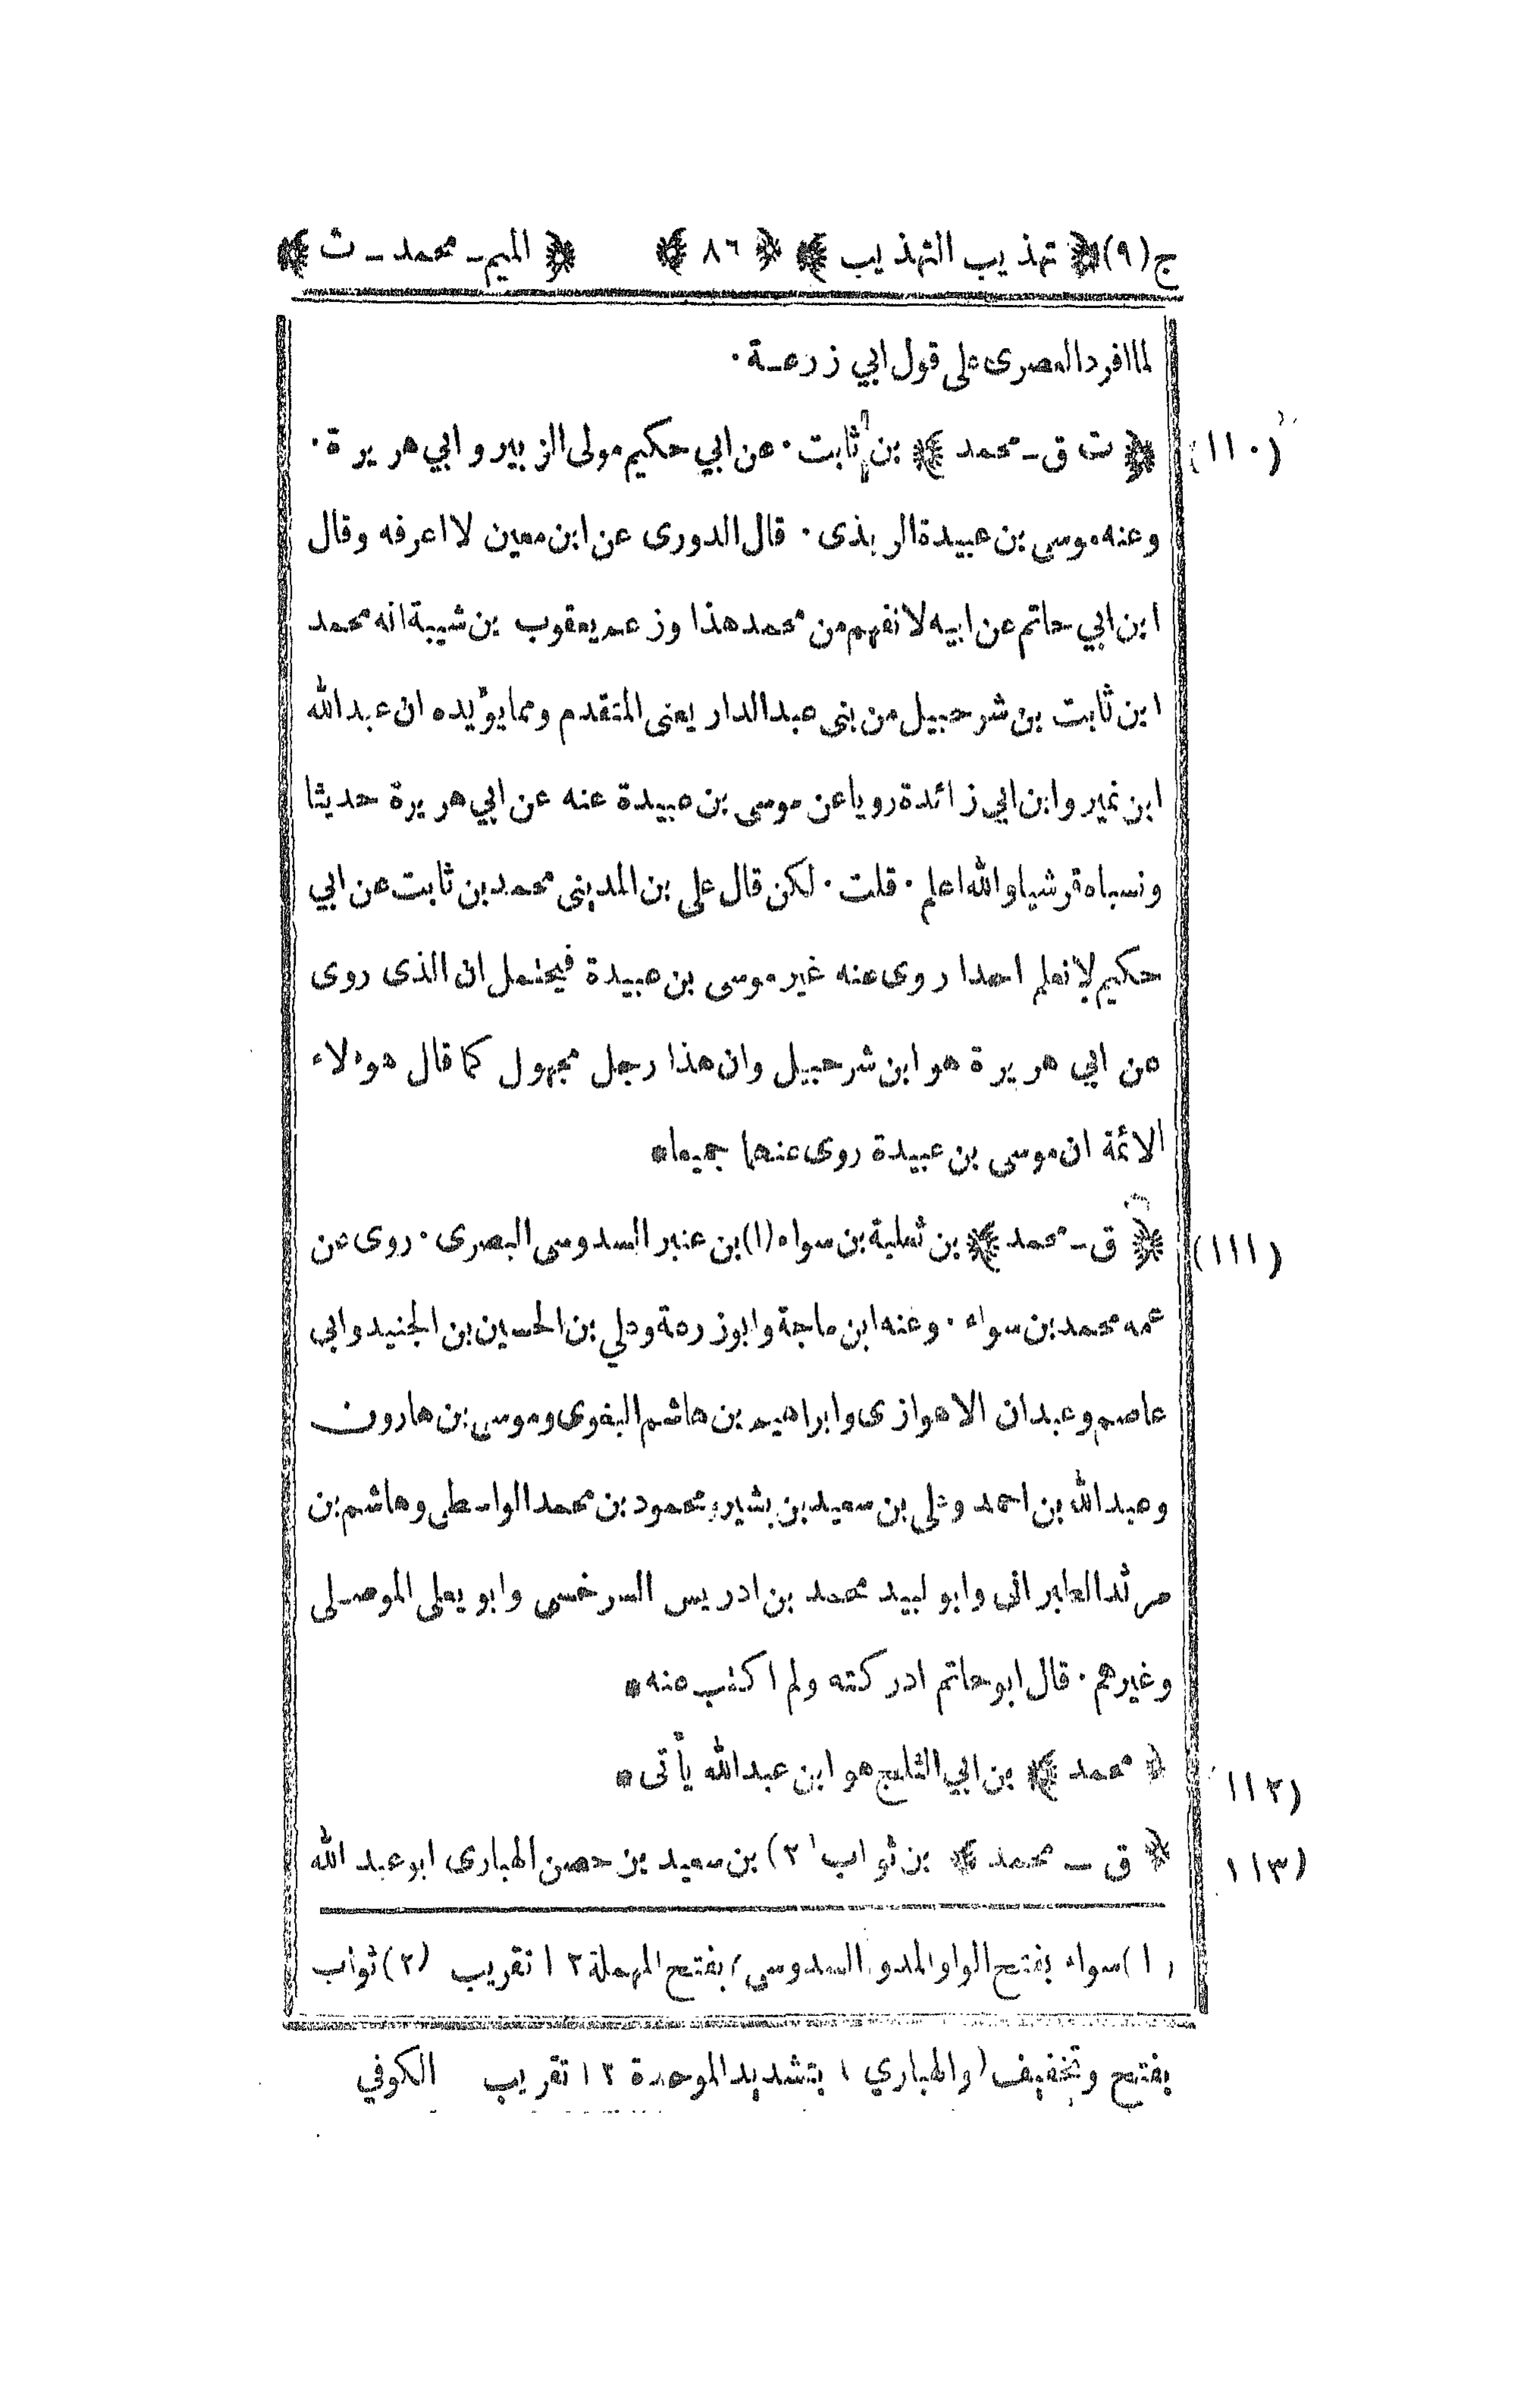 ج(٩) ﴿ تهذيب التهذيب ﴾ ﴿ ٨٦ ﴾ ﴿ الميم ـ محمد ـ ث ﴾
لما افرد المصرى على قول ابي زرعة ٠
(١١٠) ﴿ ت ق ـ محمد ﴾ بن ثابت ٠ عن ابي حكيم مولى الزبير و ابي هريرة ٠
وعنه موسى بن عبيدة الربذى ٠ قال الدورى عن ابن معين لا اعرفه وقال
ابن ابي حاتم عن ابيه لا نفهم من محمد هذا وزعم يعقوب بن شيبة انه محمد
ابن ثابت بن شرحبيل من بنى عبد الدار يعنى المتقدم ومما يؤيده ان عبد الله
ابن نمير وابن ابي زائدة رويا عن موسى بن عبيدة عنه عن ابي هريرة حديثا
ونسباه قرشيا والله اعلم ٠ قلت ٠ لكن قال على بن المدينى محمد بن ثابت عن ابي
حكيم لا نعلم احدا روى عنه غير موسى بن عبيدة فيحتمل ان الذى روى
عن ابي هريرة هو ابن شرحبيل وان هذا رجل مجهول كما قال هؤلاء
الائمة ان موسى بن عبيدة روى عنهما جميعا *
(١١١) ﴿ ق ـ محمد ﴾ بن ثعلبة بن سواء (١) بن عنبر السدوسى البصرى ٠ روى عن
عمه محمد بن سواء ٠ وعنه ابن ماجة وابو زرعة وعلي بن الحسين بن الجنيد وابي
عاصم وعبدان الاهوازى وابراهيم بن هاشم البغوى وموسى بن هارون
وعبد الله بن احمد وعلى بن سعيد بن بشير ومحمود بن محمد الواسطى وهاشم بن
مرثد الطبرانى وابو لبيد محمد بن ادريس السرخسى وابو يعلى الموصلى
وغيرهم ٠ قال ابو حاتم ادركته ولم اكتب عنه *
(١١٢ ﴿ محمد ﴾ بن ابي الثلج هو ابن عبد الله يأتى *
(١١٣ ﴿ ق ـ محمد ﴾ بن ثواب (٢) بن سعيد بن حصن الهبارى ابو عبد الله
(١) سواء بفتح الواو والمد و السدوسى / بفتح المهملة ١٢ تقريب (٢) ثواب
بفتح وتخفيف (والهباري) بتشديد الموحدة ١٢ تقريب الكوفي